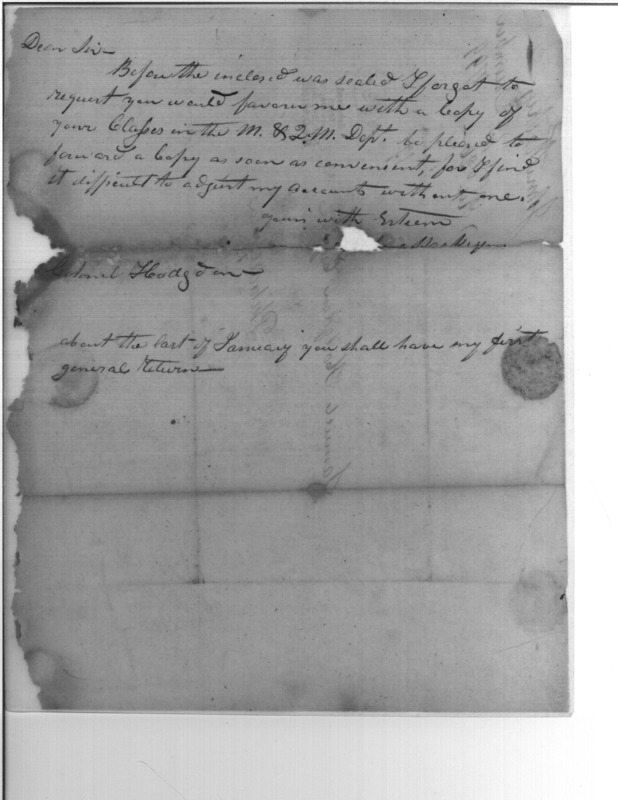 Dear Sir
Before the inclosed was sealed I forgot to
request you would favour me with a Copy of
your Classes in the M. & Q.M. Dept. be pleased to
forward a Copy as soon as convenient, for I find
it difficult to adjust my accounts without one.
yours with Esteem
Colonel Hodgdon
about the last of January you shall have my first
general return
Samuel